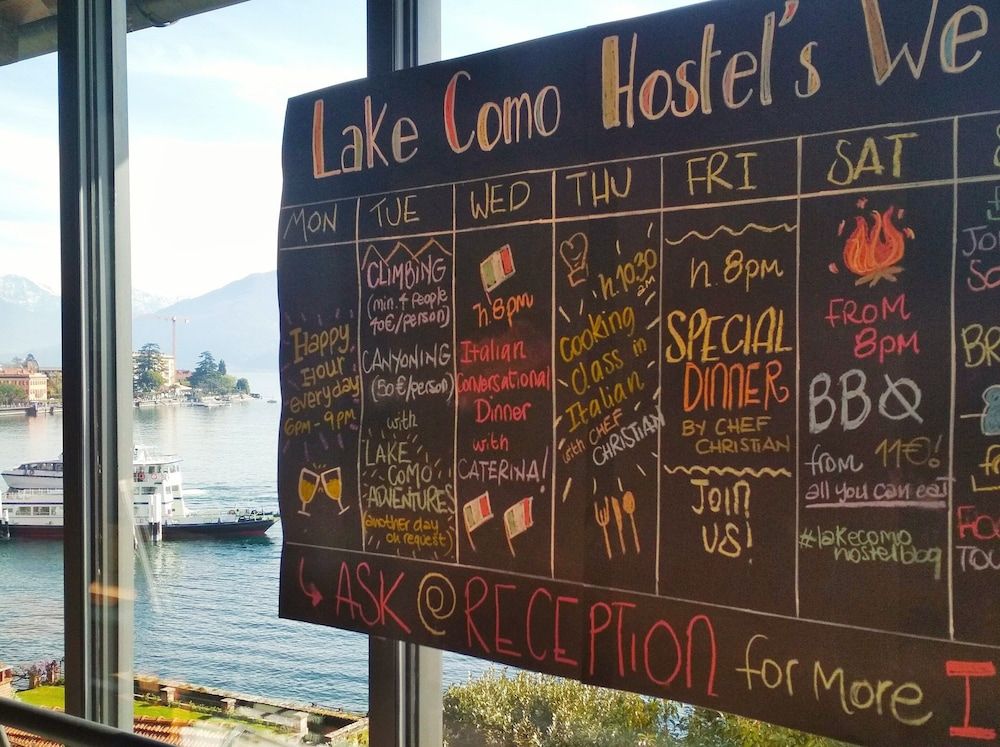 Lake Como Hostel's We
MON
Happy
Hour
everyday
6pm - 9pm
TUE
CLIMBING
(min. 4 people
40€/person)
CANYONING
(50€/person)
with
LAKE
COMO
ADVENTURES
(another day
on request)
WED
h.8pm
Italian
Conversational
Dinner
with
CATERINA!
THU
h.10.30
am
Cooking
Class in
Italian
with CHEF
CHRISTIAN
FRI
h.8pm
SPECIAL
DINNER
BY CHEF
CHRISTIAN
JOIN
US!
SAT
FROM
8pm
BBQ
from 11€!
all you can eat
#lakecomo
hostelbbq
S
BR
TOU
ASK @ RECEPTION for more I